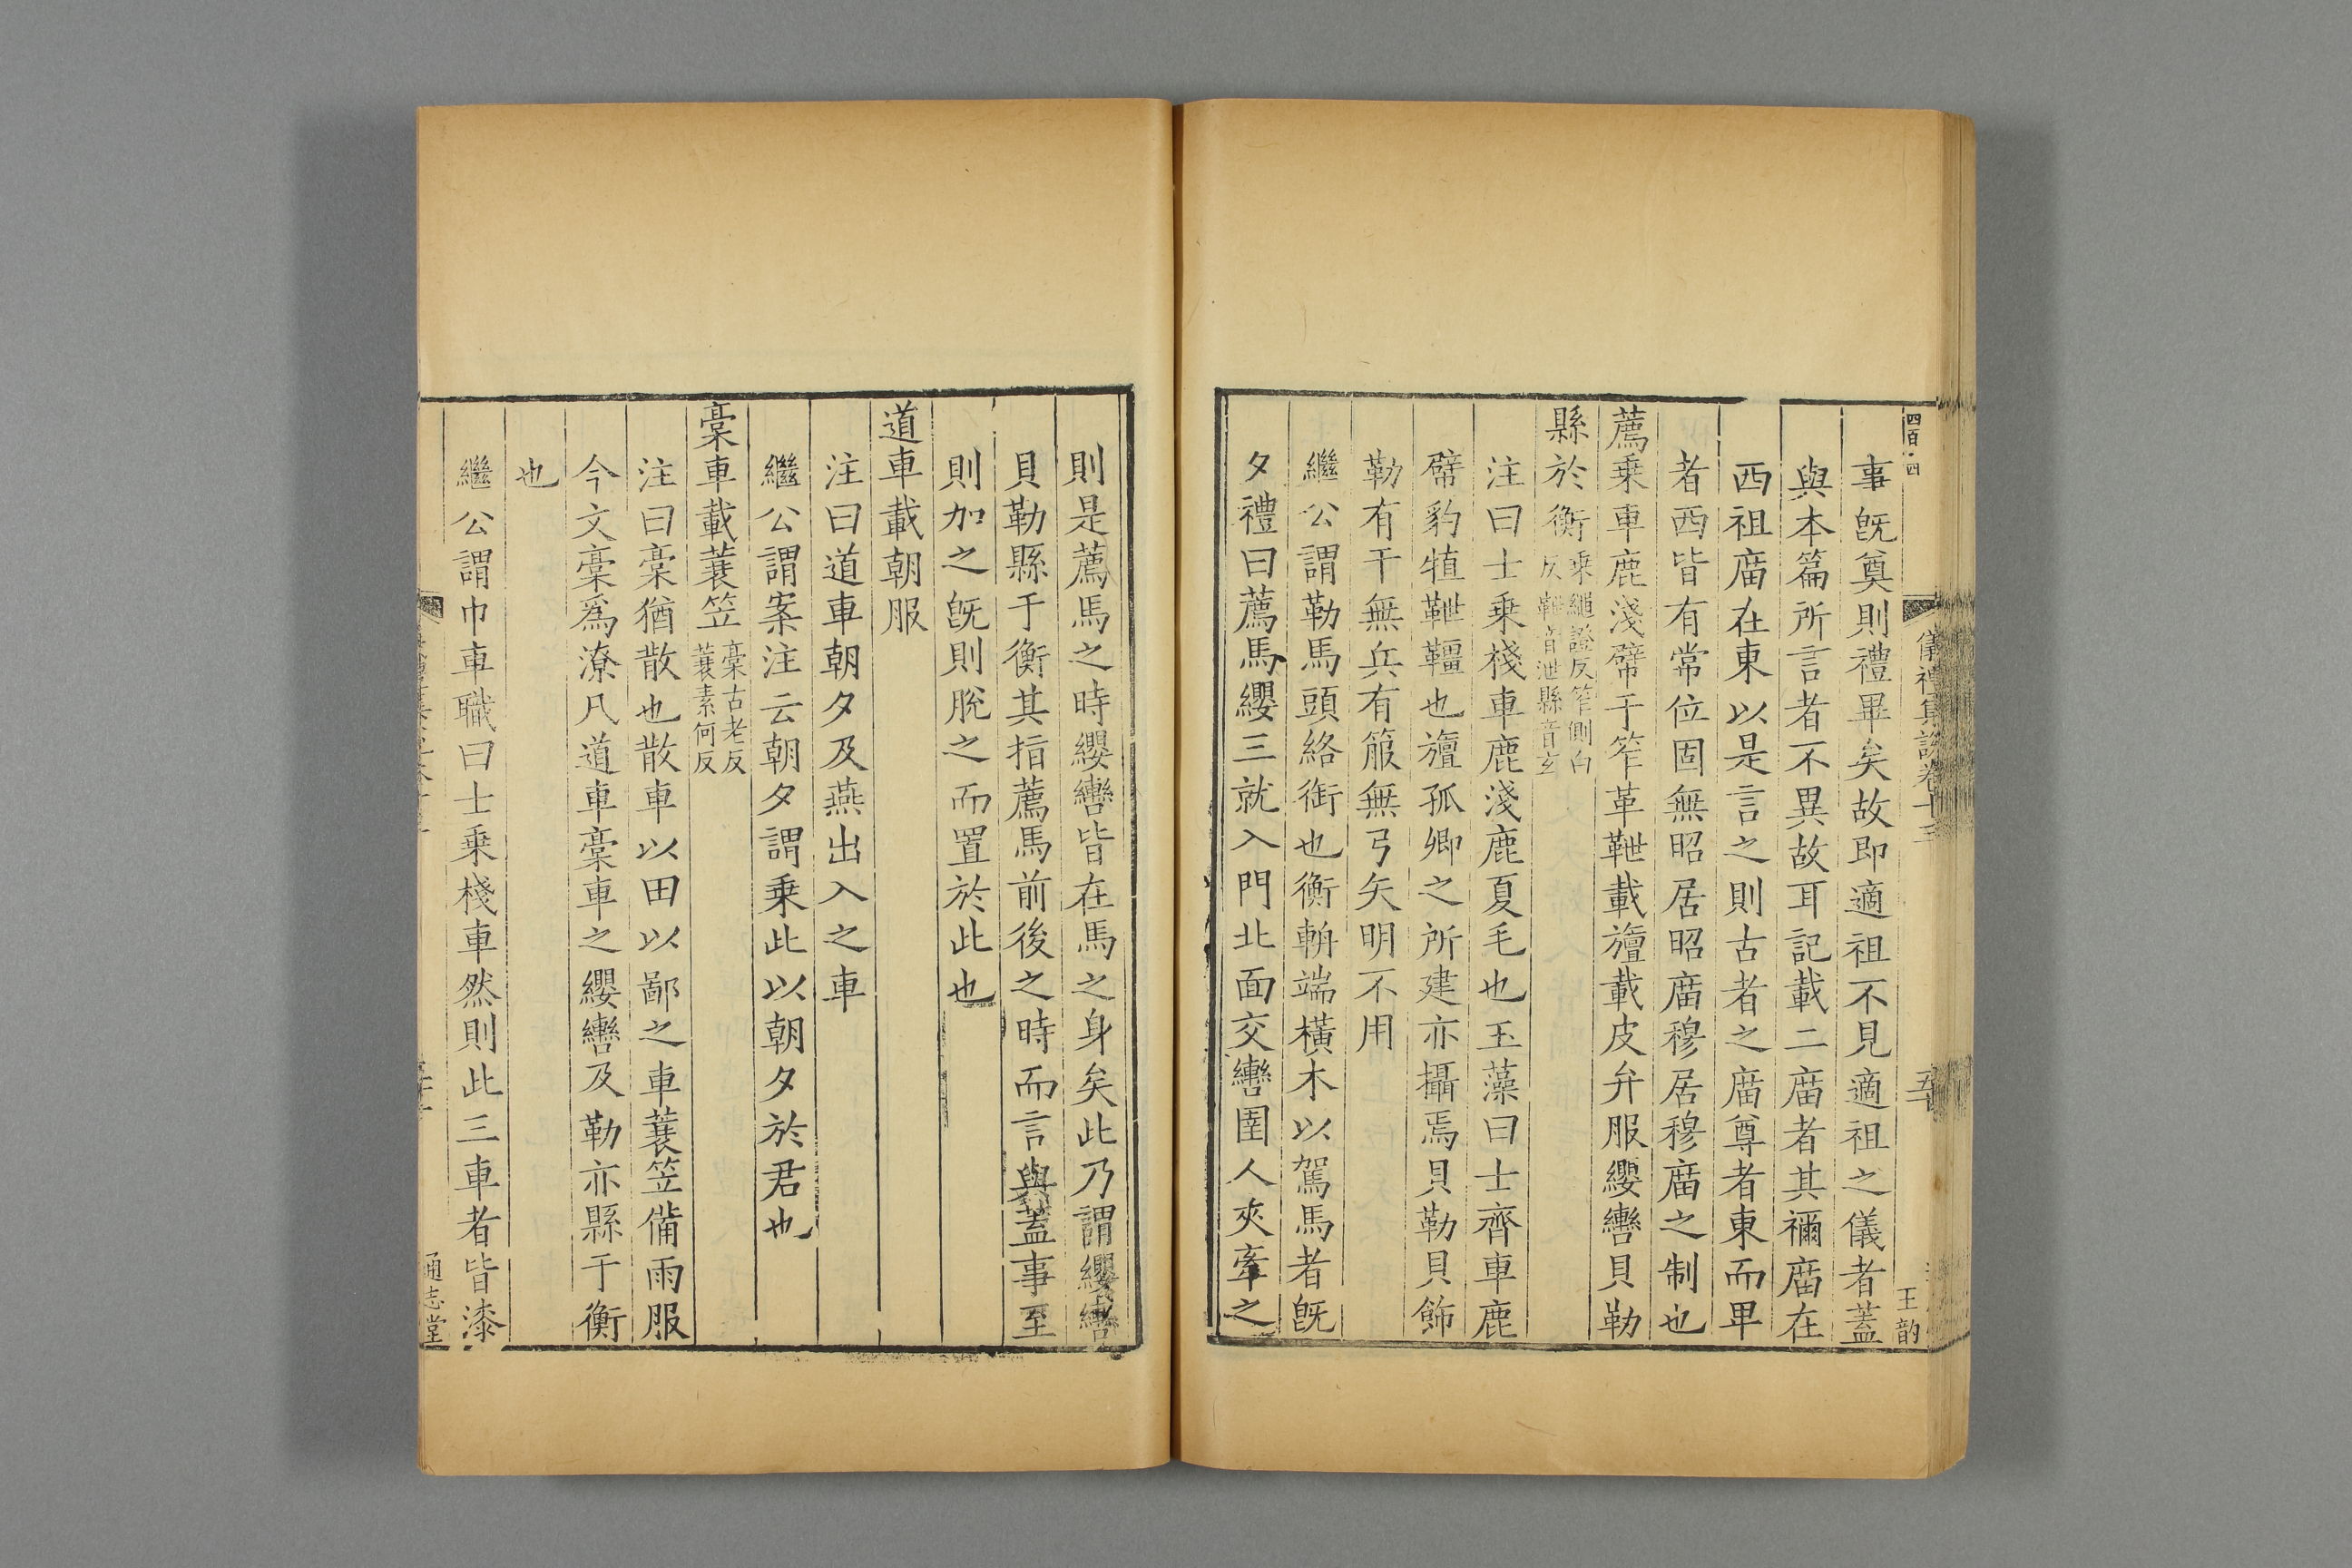 四百·四
儀禮集說卷十三
王韵
事旣奠則禮畢矣故即適祖不見適祖之儀者蓋
與本篇所言者不異故耳記載二庿者其禰庿在
西祖庿在東以是言之則古者之庿尊者東而卑
者西皆有常位固無昭居昭庿穆居穆庿之制也
薦乗車鹿淺幦干笮革靾載旜載皮弁服纓轡貝勒
縣於衡乗繩證反笮側白反靾音泄縣音玄
注曰士乗棧車鹿淺鹿夏毛也玉藻曰士齊車鹿
幦豹犆靾韁也旜孤卿之所建亦攝焉貝勒貝飾
勒有干無兵有箙無弓矢明不用
繼公謂勒馬頭絡銜也衡輈端橫木以駕馬者旣
夕禮曰薦馬纓三就入門北面交轡圉人夾牽之
則是薦馬之時纓轡皆在馬之身矣此乃謂纓轡
貝勒縣于衡其指薦馬前後之時而言與蓋事至
則加之旣則脫之而置於此也
道車載朝服
注曰道車朝夕及燕出入之車
繼公謂案注云朝夕謂乗此以朝夕於君也
槀車載蓑笠槀古老反蓑素何反
注曰槀猶散也散車以田以鄙之車蓑笠備雨服
今文槀爲潦凡道車槀車之纓轡及勒亦縣于衡
也
繼公謂巾車職曰士乗棧車然則此三車者皆漆
通志堂